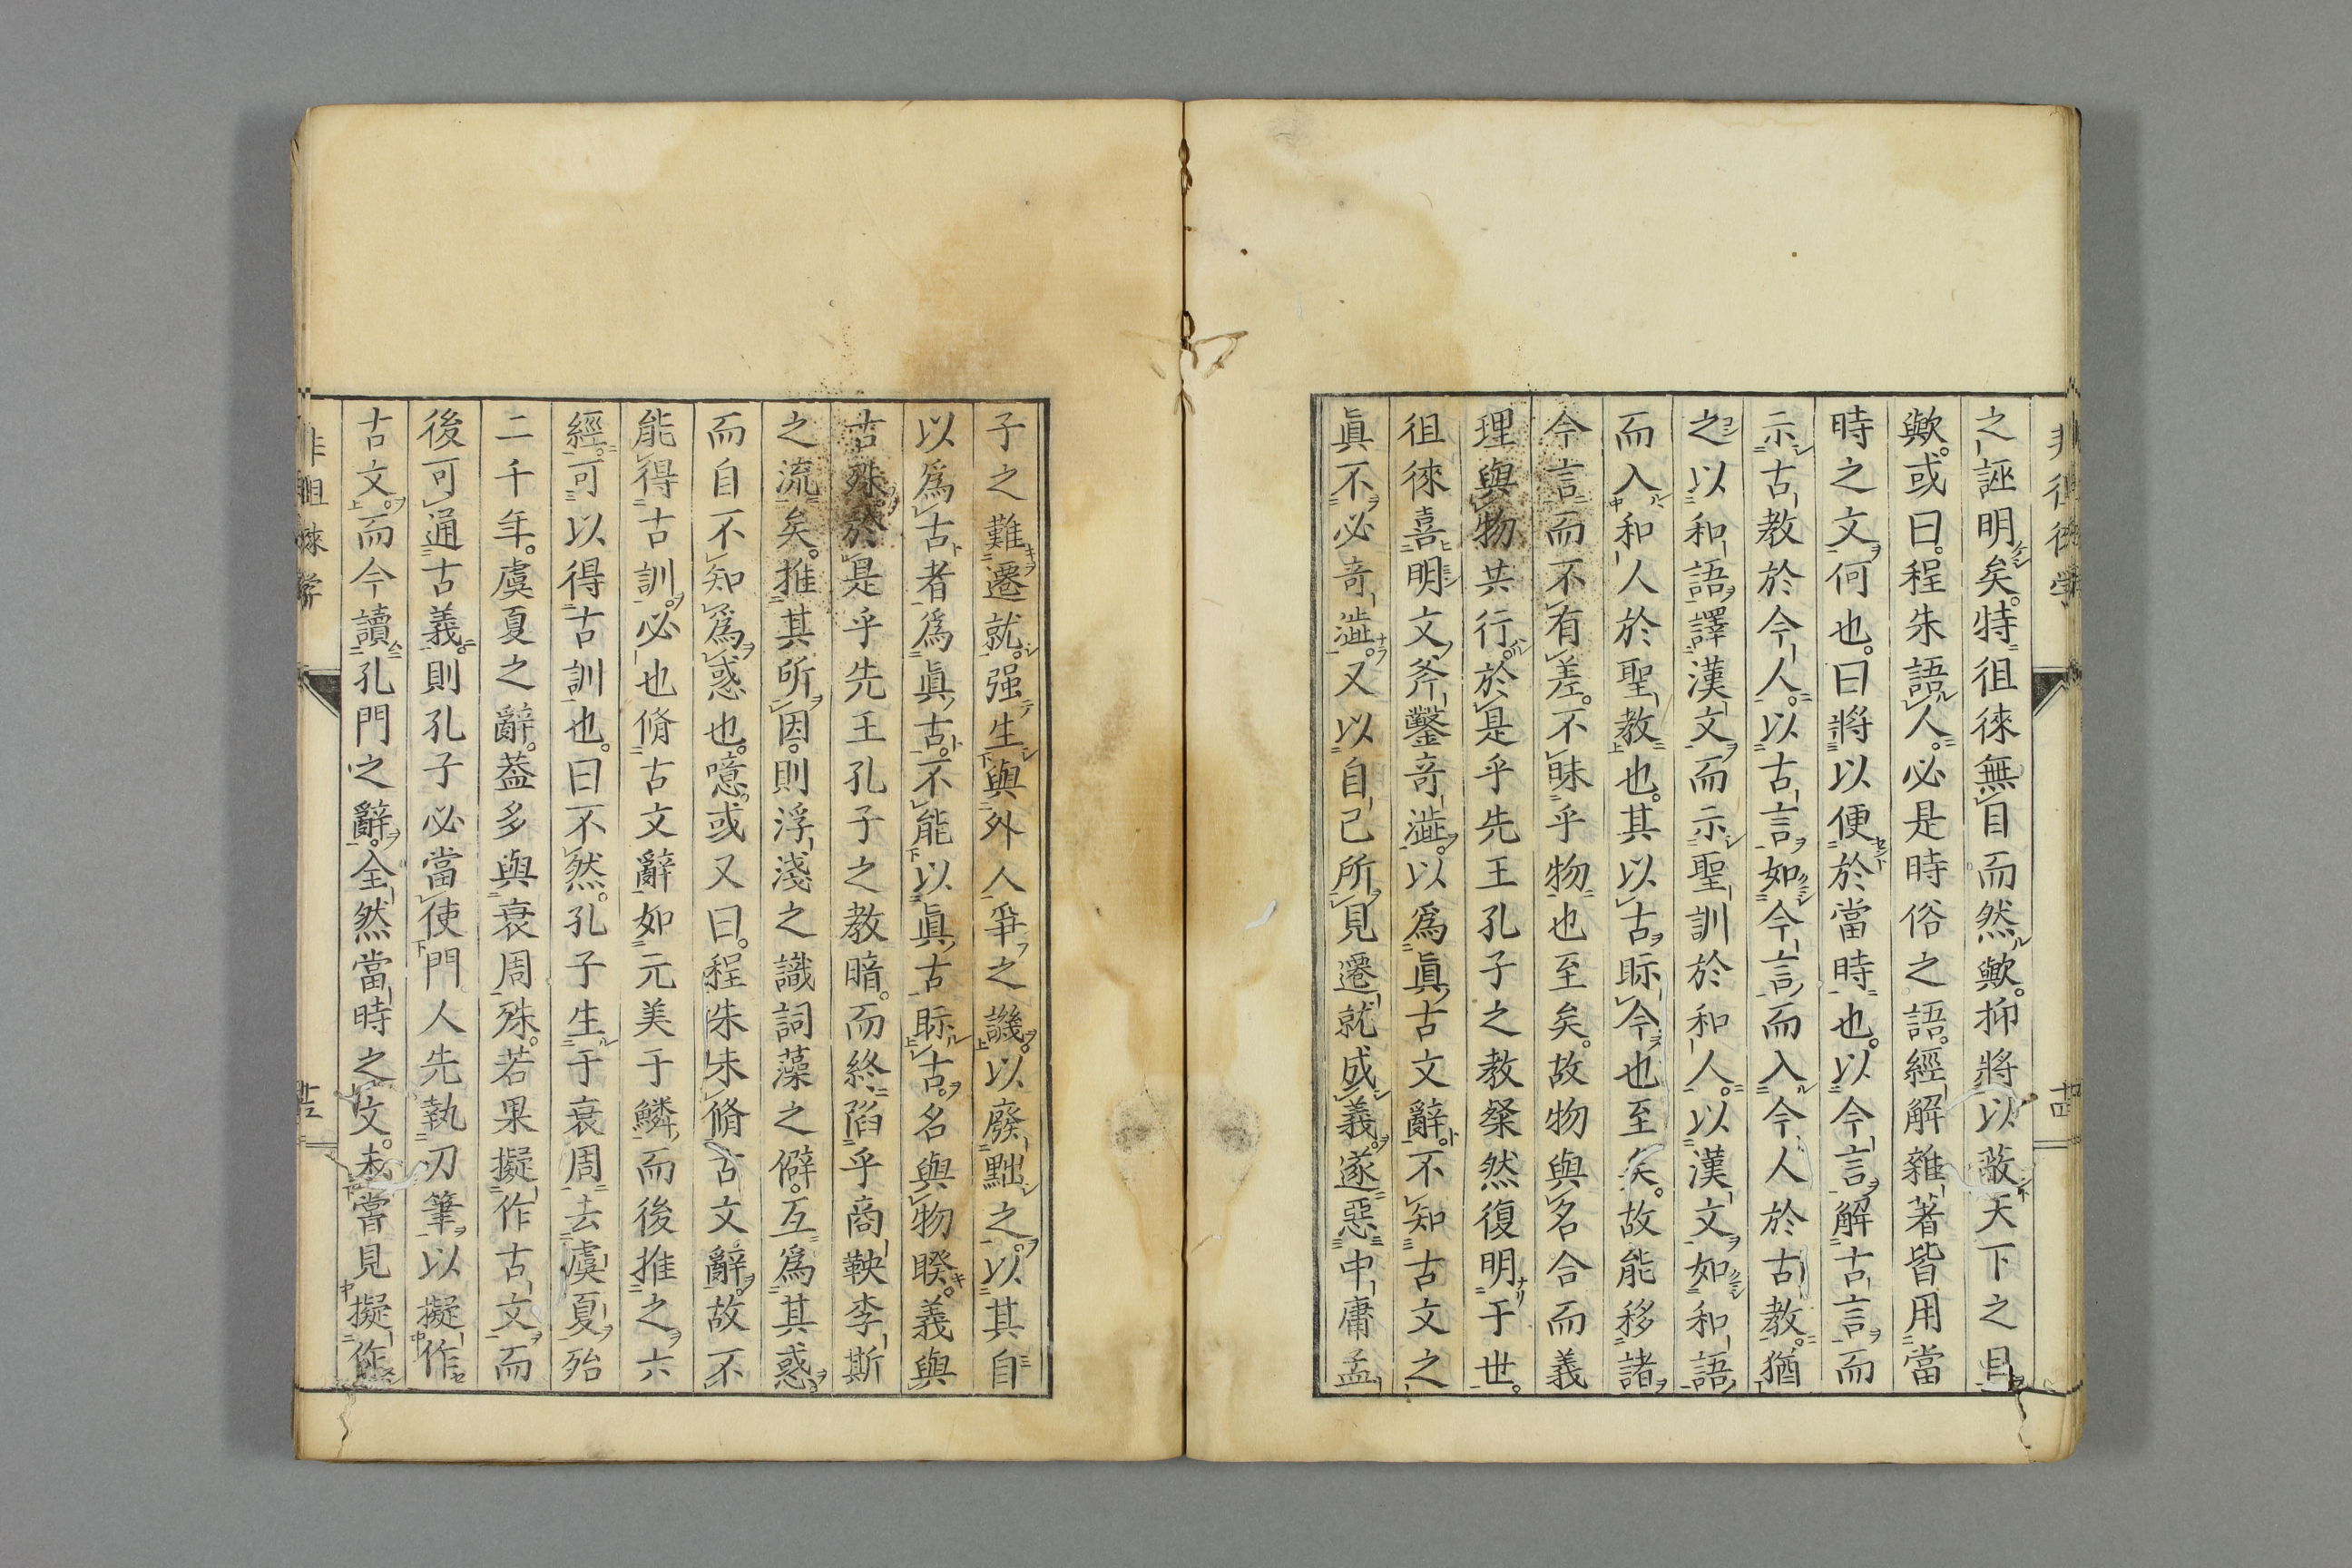 之誣明矣。特徂徠無目而然歟。抑將以蔽天下之目
歟。或曰。程朱語人。必是時俗之語。經解雜著皆用當
時之文何也。曰將以便於當時也。以今言解古言而
示古教於今人。以古言如今言而入今人於古教。猶
之以和語譯漢文而示聖訓於和人。以漢文如和語
而入和人於聖教也。其以古眎今也至矣。故能移諸
今言而不有差。不昧乎物也至矣。故物與名合而義
理與物共行。於是乎先王孔子之教粲然復明于世。
徂徠喜明文斧鑿奇澁。以爲眞古文辭。不知古文之
眞不必奇澁。又以自己所見遷就成義。遂惡中庸孟
子之難遷就。强生與外人爭之譏。以廢黜之。以其自
以爲古者爲眞古。不能以眞古眎古。名與物睽。義與
古殊。於是乎先王孔子之教暗。而終陷乎商鞅李斯
之流矣。推其所因。則浮淺之識詞藻之僻。互爲其惑
而自不知爲惑也。噫。或又曰。程朱未脩古文辭。故不
能得古訓。必也脩古文辭如元美于鱗而後推之六
經。可以得古訓也。曰不然。孔子生于衰周去虞夏殆
二千年。虞夏之辭。葢多與衰周殊。若果擬作古文而
後可通古義。則孔子必當使門人先執刀筆以擬作
古文。而今讀孔門之辭。全然當時之文。未嘗見擬作
非徂徠學